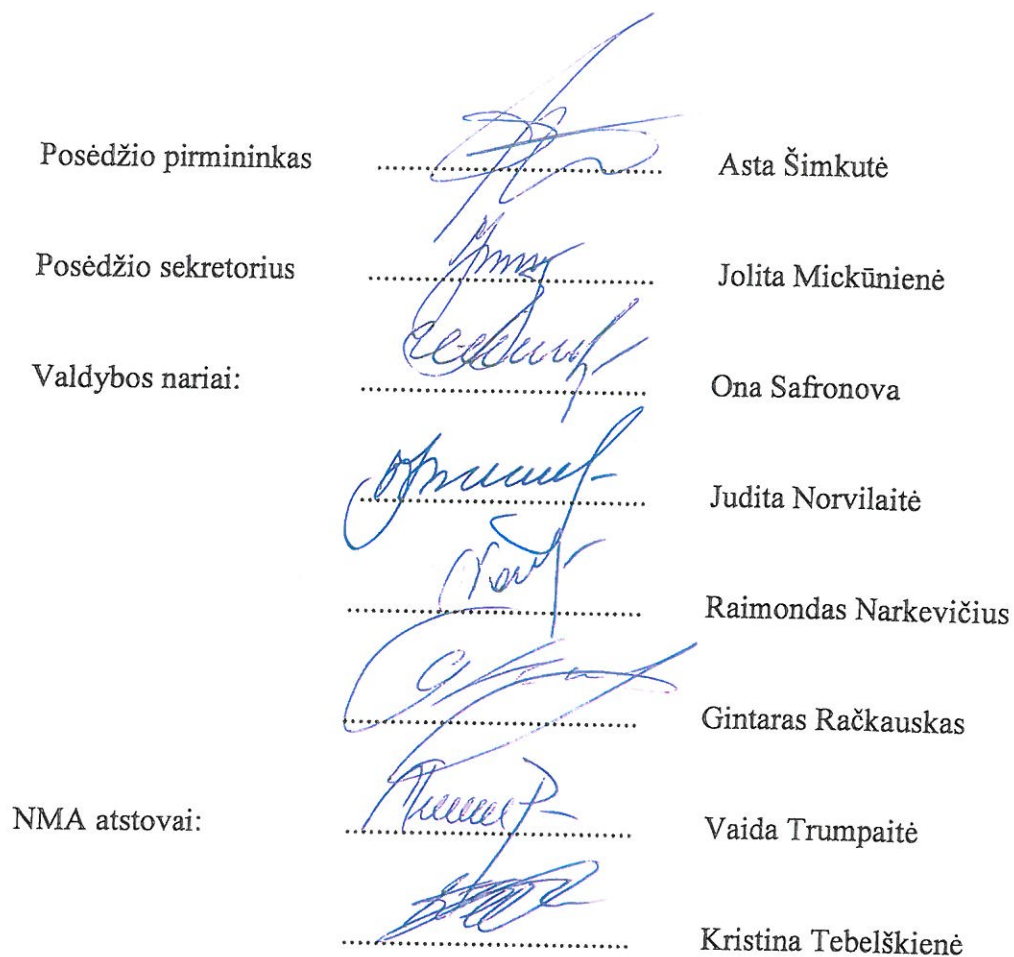 Posėdžio pirmininkas ........................................ Asta Šimkutė
Posėdžio sekretorius ........................................ Jolita Mickūnienė
Valdybos nariai: ........................................ Ona Safronova
........................................ Judita Norvilaitė
........................................ Raimondas Narkevičius
........................................ Gintaras Račkauskas
NMA atstovai: ........................................ Vaida Trumpaitė
........................................ Kristina Tebelškienė